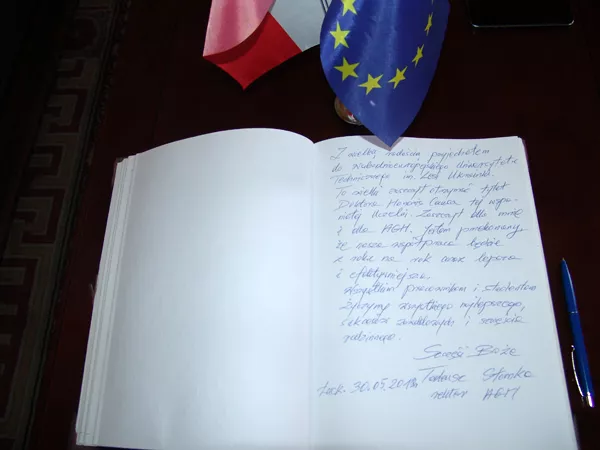 Z wielką radością przyjechałem
do Wschodnioeuropejskiego Uniwersytetu
im. Łesi Ukrainki.
To wielki zaszczyt otrzymać tytuł
Doktora Honoris Causa tej wspa-
niałej Uczelni. Zaszczyt dla mnie
i dla AGH. Jestem przekonany,
że nasza współpraca będzie
z roku na rok coraz lepsza
i efektywniejsza.
Wszystkim pracownikom i studentom
życzymy wszystkiego najlepszego,
i szczęścia
rodzinnego.
Szczęść Boże
Tadeusz Słomka
Łuck. 30.05.201
rektor AGH